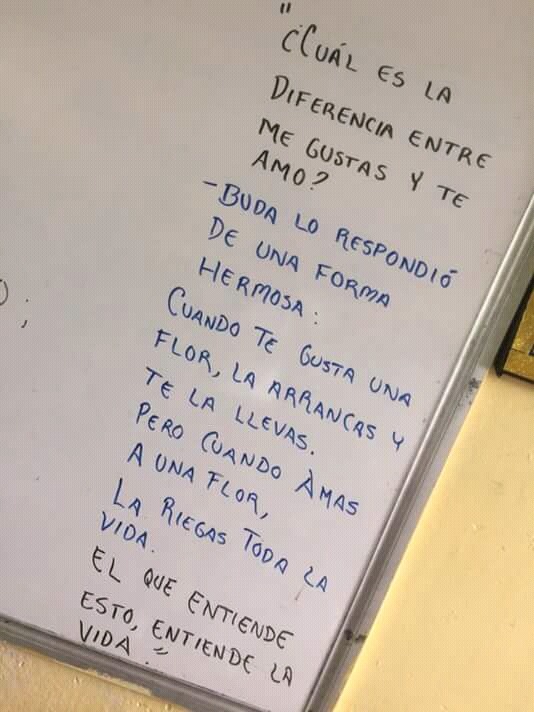 "
¿CUÁL ES LA
DIFERENCIA ENTRE
ME GUSTAS Y TE
AMO?
- BUDA LO RESPONDIÓ
DE UNA FORMA
HERMOSA:
CUANDO TE GUSTA UNA
FLOR, LA ARRANCAS Y
TE LA LLEVAS.
PERO CUANDO AMAS
A UNA FLOR,
LA RIEGAS TODA LA
VIDA.
EL QUE ENTIENDE
ESTO, ENTIENDE LA
VIDA."